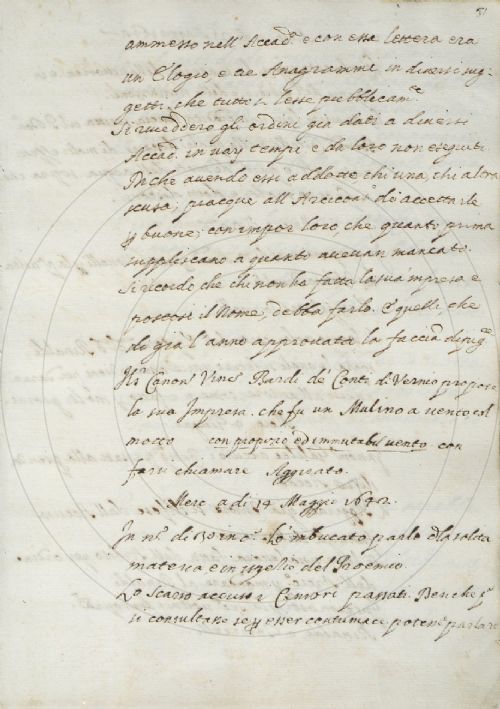 51
ammesso nell' Accad.ª e con esse lettera era
un Elogio, e tre Anagrammi in diversi sug=
getti, che tutto si lesse pubblicam.te
Si riveddero gli ordini già dati a diversi
Accad.i in varij tempi e da loro non eseguiti
Di che avendo essi addotte chi una, chi altra
scusa; piacque all' Arcicons.o di accettarle
p buone; con impor loro che quanto prima
suppliscano a quanto avevan mancato.
Si ricordò che chi non ha fatta la sua impresa e
postosi il Nome, debba farlo. E quelli, che
di già l' anno approvata la faccin dipig.e
Il S.r Canon.o Vinc.o Bardi de' Conti di Vernio propose
la sua Impresa, che fu un Mulino a vento col
motto con proprio ed immutabil vento con
farsi chiamare Aggirato.
Merc. a di 14 Maggio 1642.
In n.o di 30 in c.a Lo 'mbucato parlò della solita
materia e in ispecie del Proemio.
Lo Scarso accusò i Censori passati. Benche p
si consultasse se p esser contumace poteva parlare